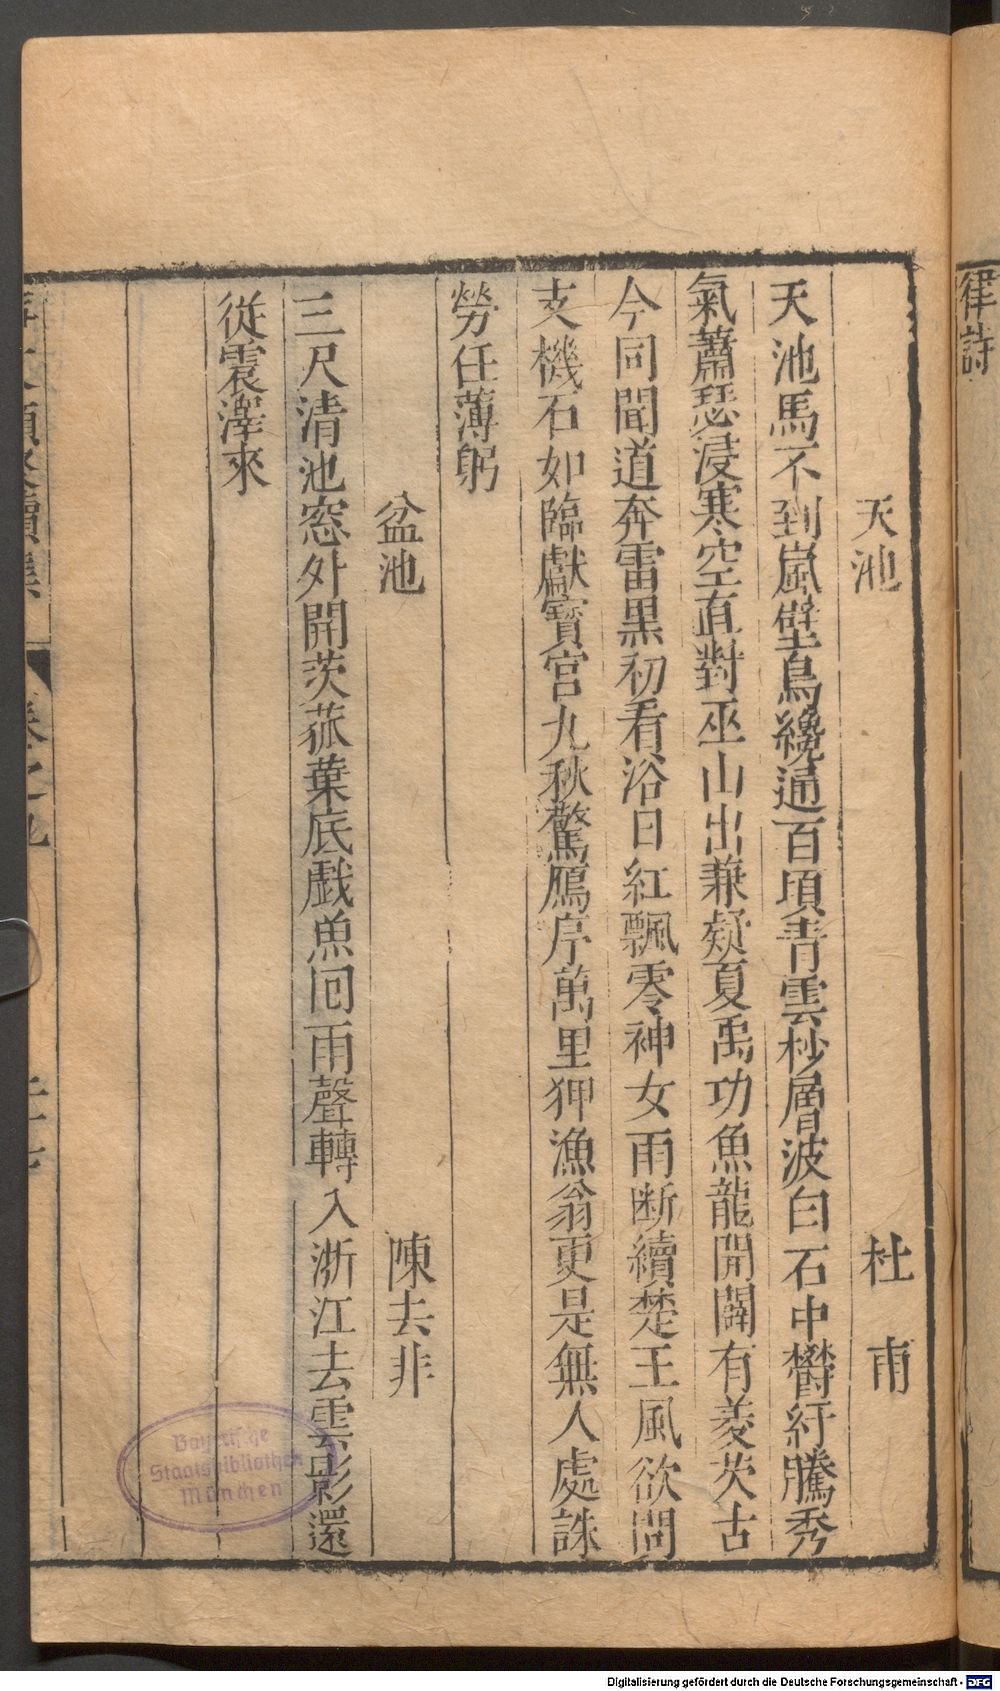 律詩
天池　杜甫
天池馬不到嵐壁鳥纔通百頃青雲杪層波白石中欝紆騰秀
氣蕭瑟浸寒空直對巫山出兼疑夏禹功魚龍開闢有菱芡古
今同聞道奔雷黑初看浴日紅飄零神女雨断續楚王風欲問
支機石如臨獻寳宮九秋驚鴈序萬里狎漁翁更是無人處誅
勞任薄躬
盆池　陳去非
三尺清池窓外開茨菰葉底戯魚囘雨聲轉入浙江去雲影還
從震澤來
卷之九
Bayerische
Staatsbibliothek
München
Digitalisierung gefördert durch die Deutsche Forschungsgemeinschaft - DFG